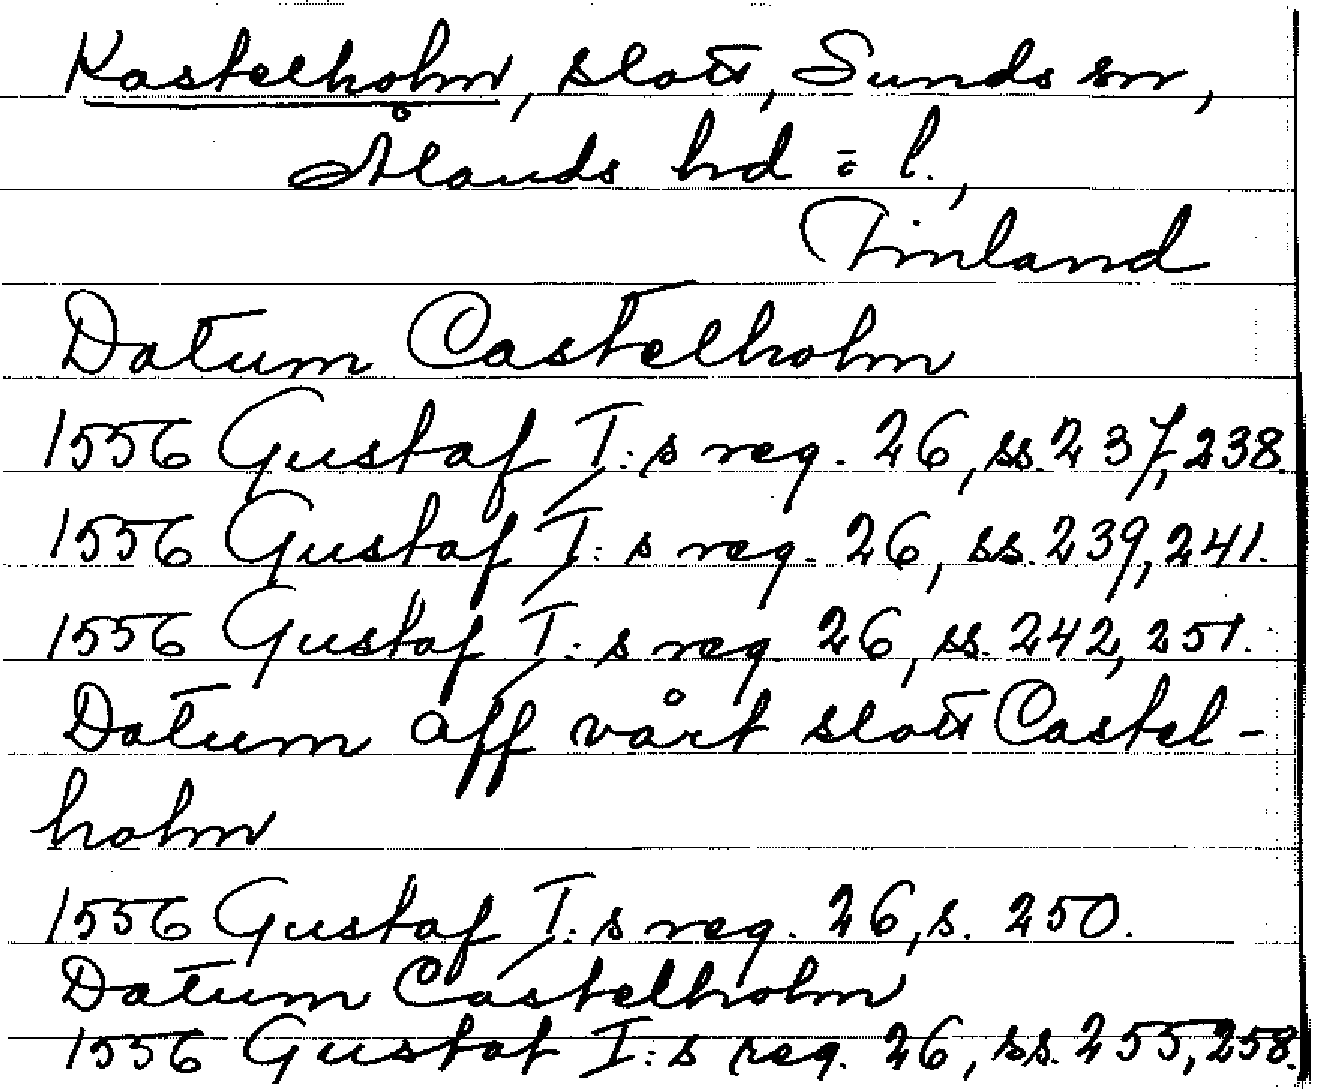 Kastelholm, slott, Sunds sn,
Ålands hd = l.,
Finland
Datum Castelholm
1556 Gustaf I:s reg. 26, ss. 237, 238.
1556 Gustaf I:s reg. 26, ss. 239, 241.
1556 Gustaf I:s reg 26, ss. 242, 251.
Datum aff vårt slott Castel-
holm
1556 Gustaf I:s reg. 26, s. 250.
Datum Castelholm
1556 Gustaf I:s reg. 26, ss. 255, 258.